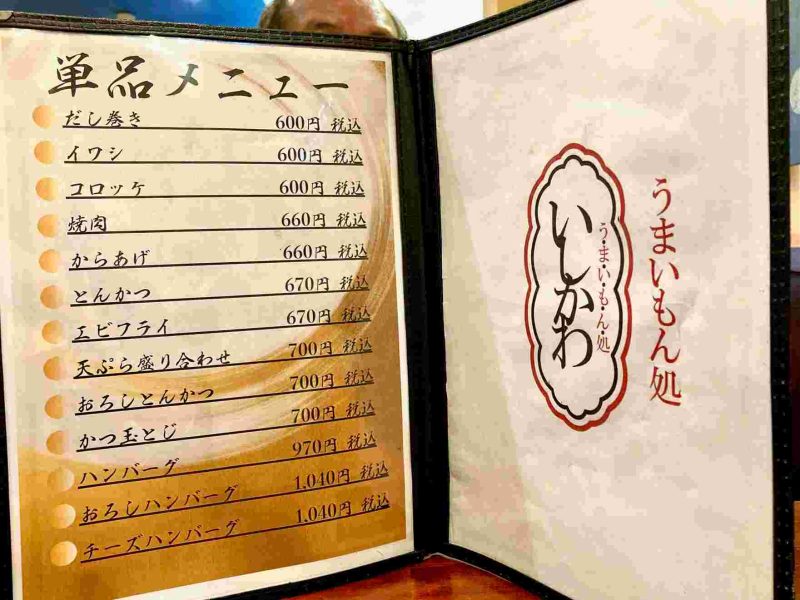 単品メニュー
だし巻き 600円 税込
イワシ 600円 税込
コロッケ 600円 税込
焼肉 660円 税込
からあげ 660円 税込
とんかつ 670円 税込
エビフライ 670円 税込
天ぷら盛り合わせ 700円 税込
おろしとんかつ 700円 税込
かつ玉とじ 700円 税込
ハンバーグ 970円 税込
おろしハンバーグ 1,040円 税込
チーズハンバーグ 1,040円 税込
うまいもん処
う・ま・い・も・ん・処
いしかわ